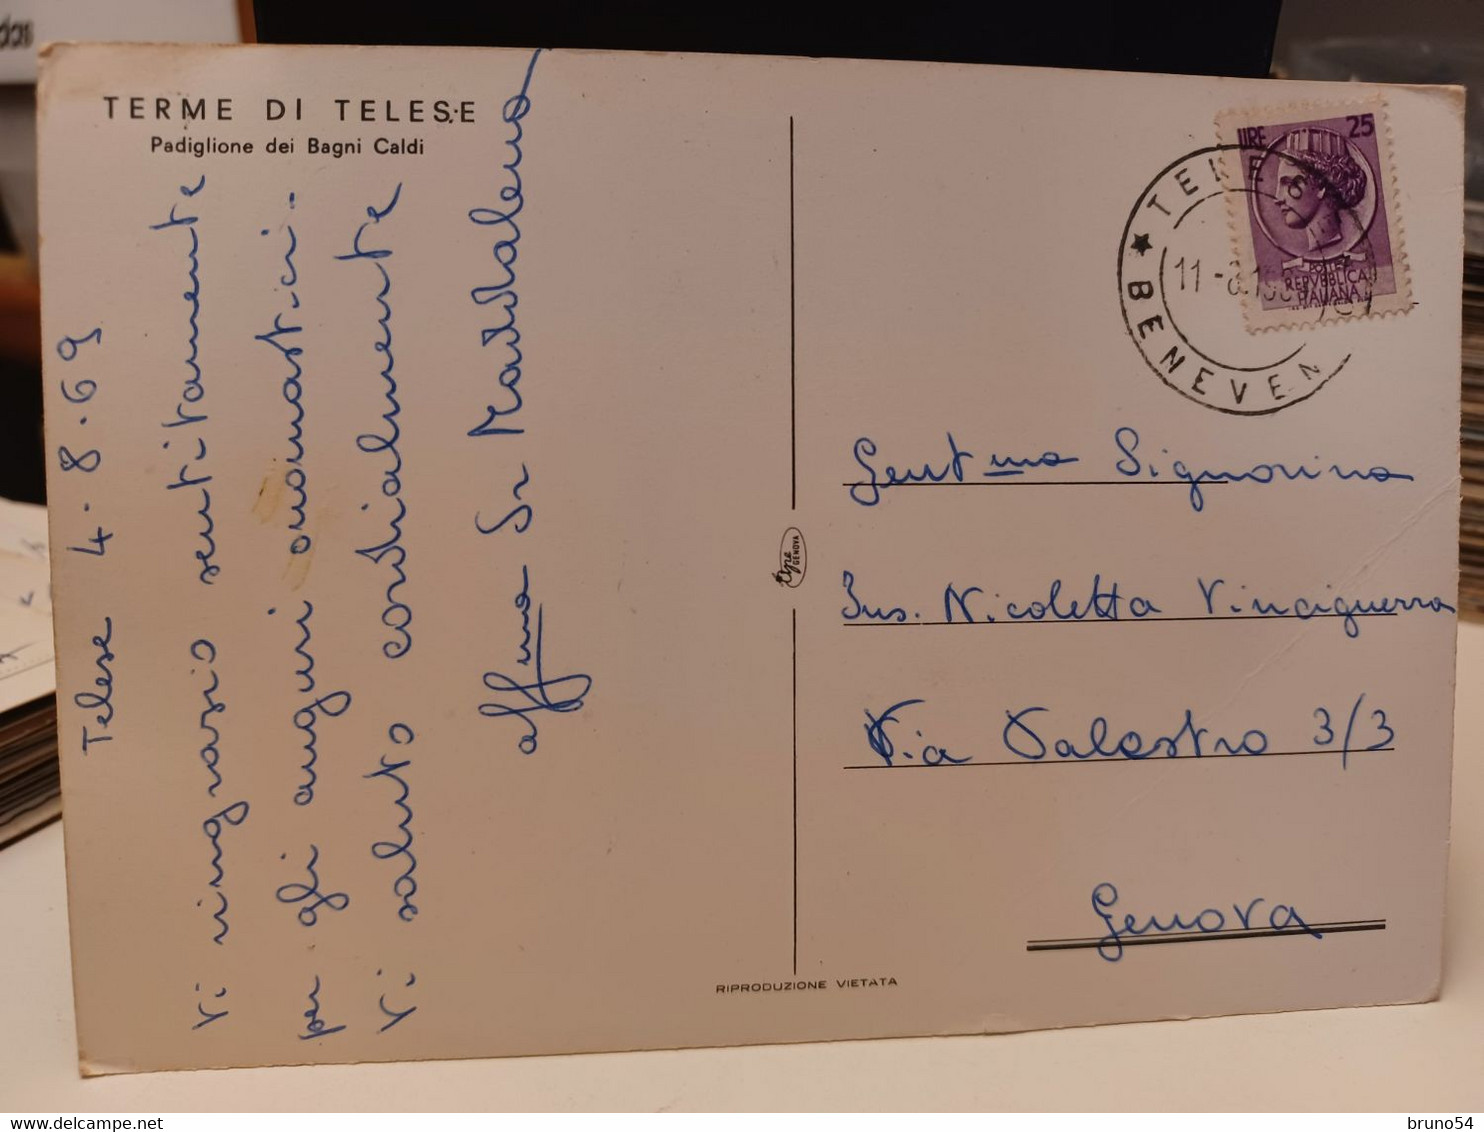 TERME DI TELESE
Padiglione dei Bagni Caldi
Telese 4.8.69
Vi ringrazio sentitamente
per gli auguri onomastici.
Vi saluto cordialmente
aff.ma Sr Maddalena
LIRE 25
POSTE
REPVBBLICA
ITALIANA
TELESE
11 -8.196
★ BENEVEN
Gent.ma Signorina
Ins. Nicoletta Vinciguerra
Via Palestro 3/3
Genova
GENOVA
RIPRODUZIONE VIETATA
bruno54